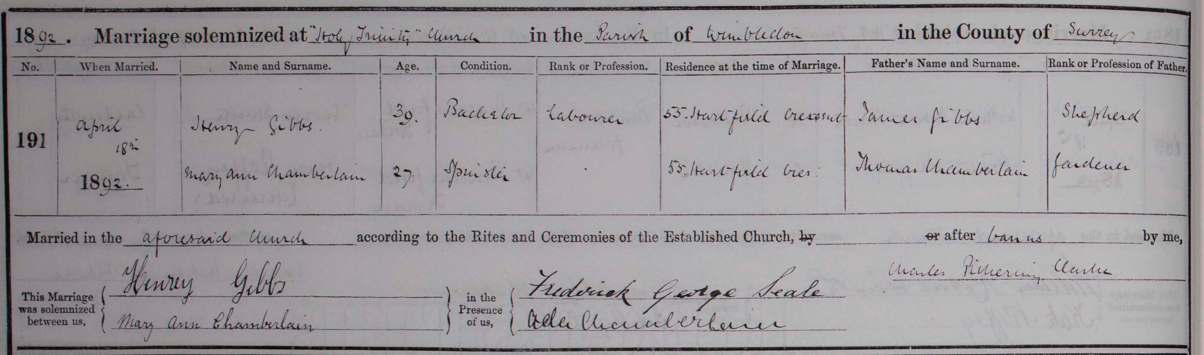 1892. Marriage solemnized at "Holy Trinity" Church in the Parish of Wimbledon in the County of Surrey
No. When Married. Name and Surname. Age. Condition. Rank or Profession. Residence at the time of Marriage. Father's Name and Surname. Rank or Profession of Father.
191 April 18th 1892. Henry Gibbs. 39. Bachelor Labourer 55. Hartfield Crescent James Gibbs Shepherd
Mary Ann Chamberlain 27. Spinster 55. Hartfield Cres: Thomas Chamberlain Gardener
Married in the aforesaid Church according to the Rites and Ceremonies of the Established Church, by or after banns by me,
Charles Pickering Clarke
This Marriage was solemnized between us, Henrey Gibbs in the Presence of us, Frederick George Seale
Mary Ann Chamberlain Ada Chamberlain